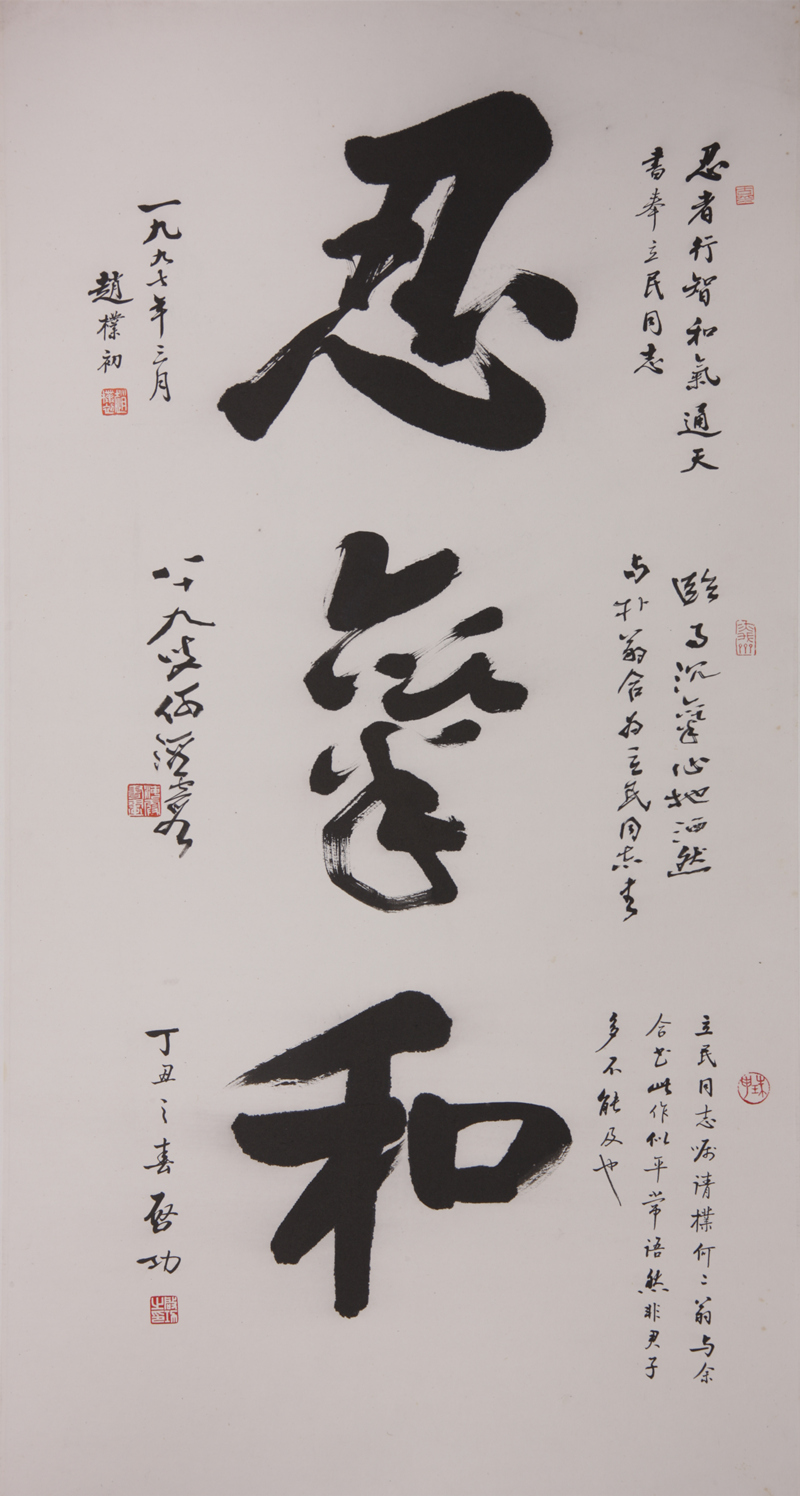 忍
氣
和
忍者行智和氣通天
書奉立民同志
一九九七年三月
趙樸初
臨事沉氣心地洒然
与朴翁合为立民同志書
八十九叟何海霞
立民同志嘱请樸何二翁与余
合書此作似平常语然非君子
多不能及也
丁丑之春启功